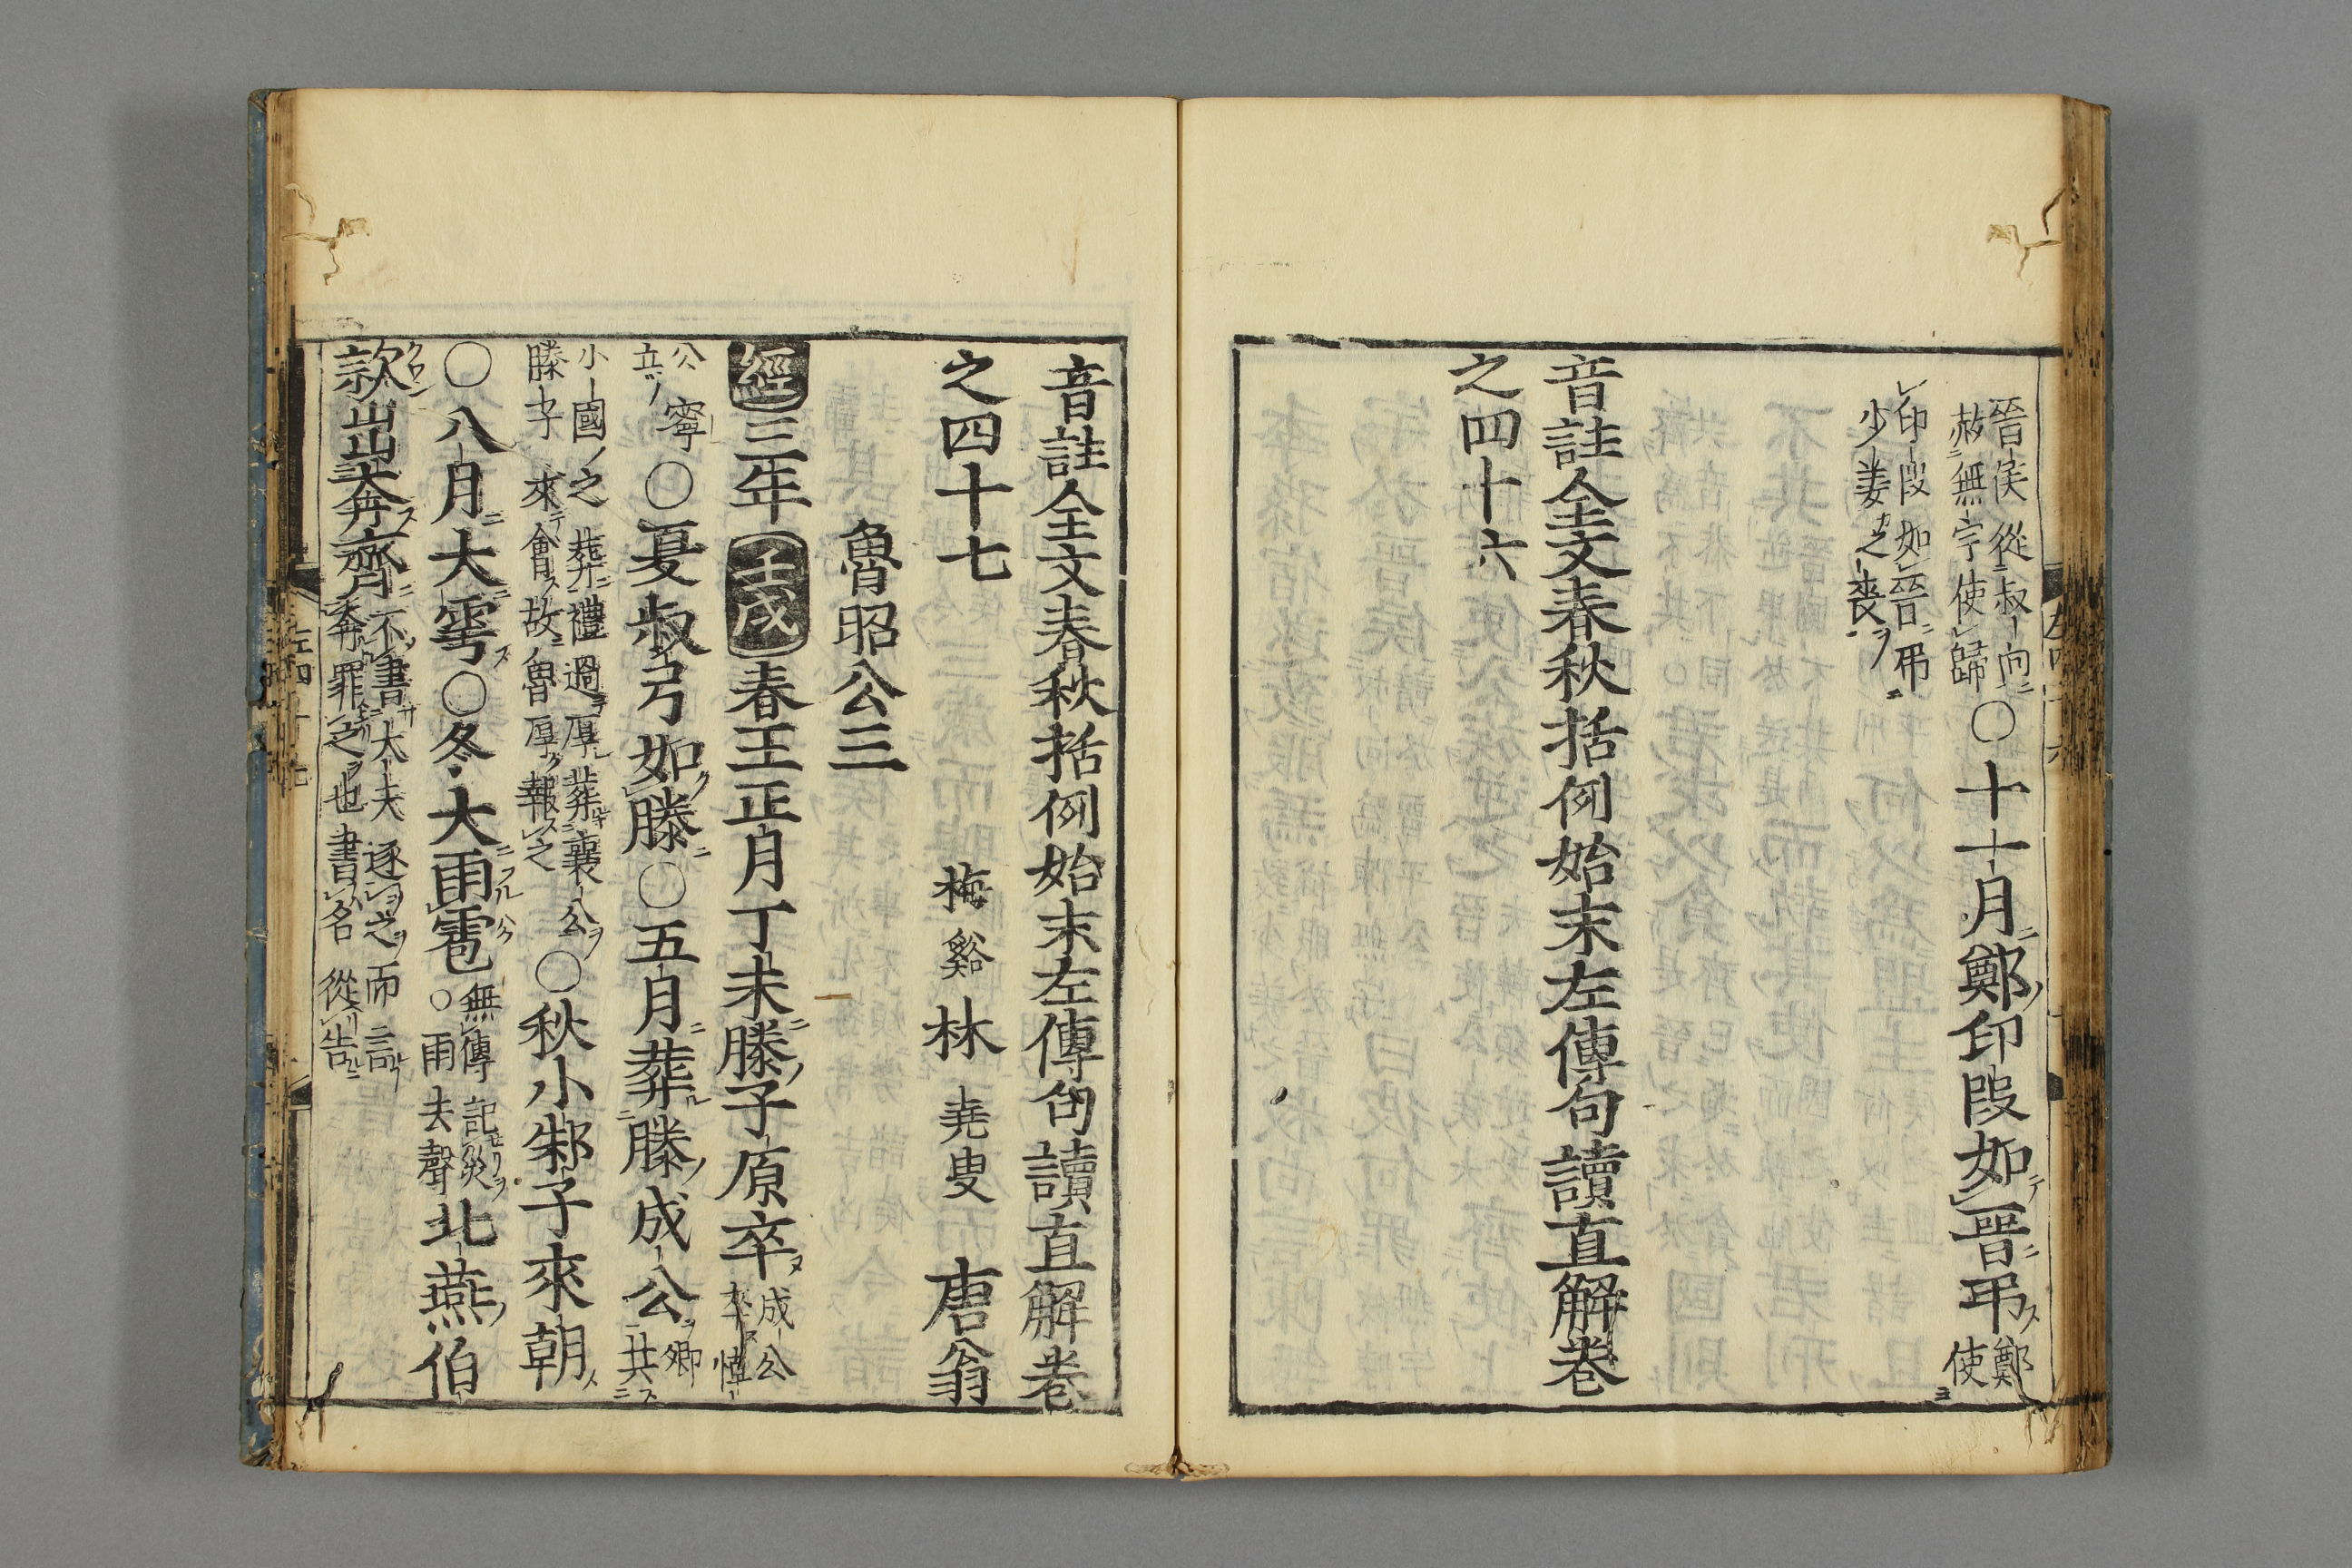 晉侯從叔向
赦無宇使歸
○十一月鄭印段如晉弔
鄭
使
印段如晉弔
少姜之喪
音註全文春秋括例始末左傳句讀直解卷
之四十六
音註全文春秋括例始末左傳句讀直解卷
之四十七 梅谿 林 堯叟 唐翁
魯昭公三
經三年壬戌春王正月丁未滕子原卒
成公
卒悼
公寧
立
○夏叔弓如滕○五月葬滕成公
卿
共
小國之葬禮過厚葬襄公
滕子來會故魯厚報之
○秋小邾子來朝
○八月大雩○冬大雨雹
無傳記災
○雨去聲
北燕伯
款出奔齊
不書大夫逐之而言
奔罪之也書名從告